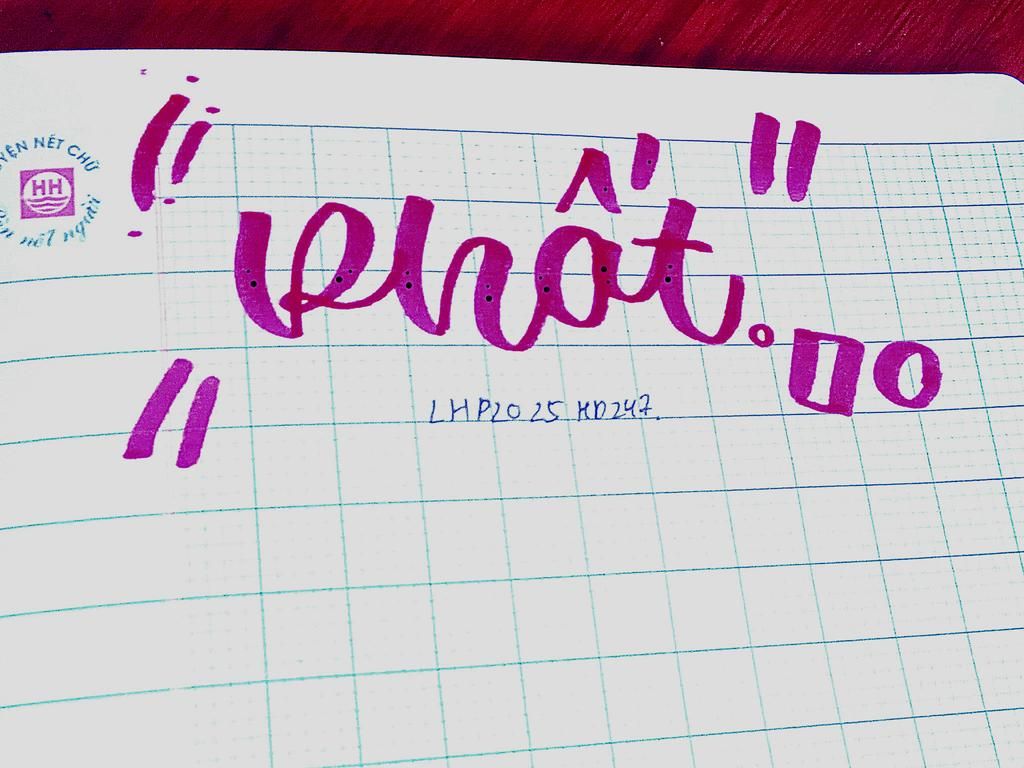 YỆN NẾT CHỮ
HH
nết người
phất.
LHP2025 HD247.